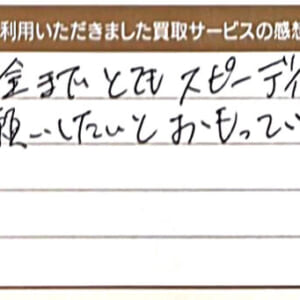 利用いただきました買取サービスの感想
金までとてもスピーディ
願いしたいとおもってい